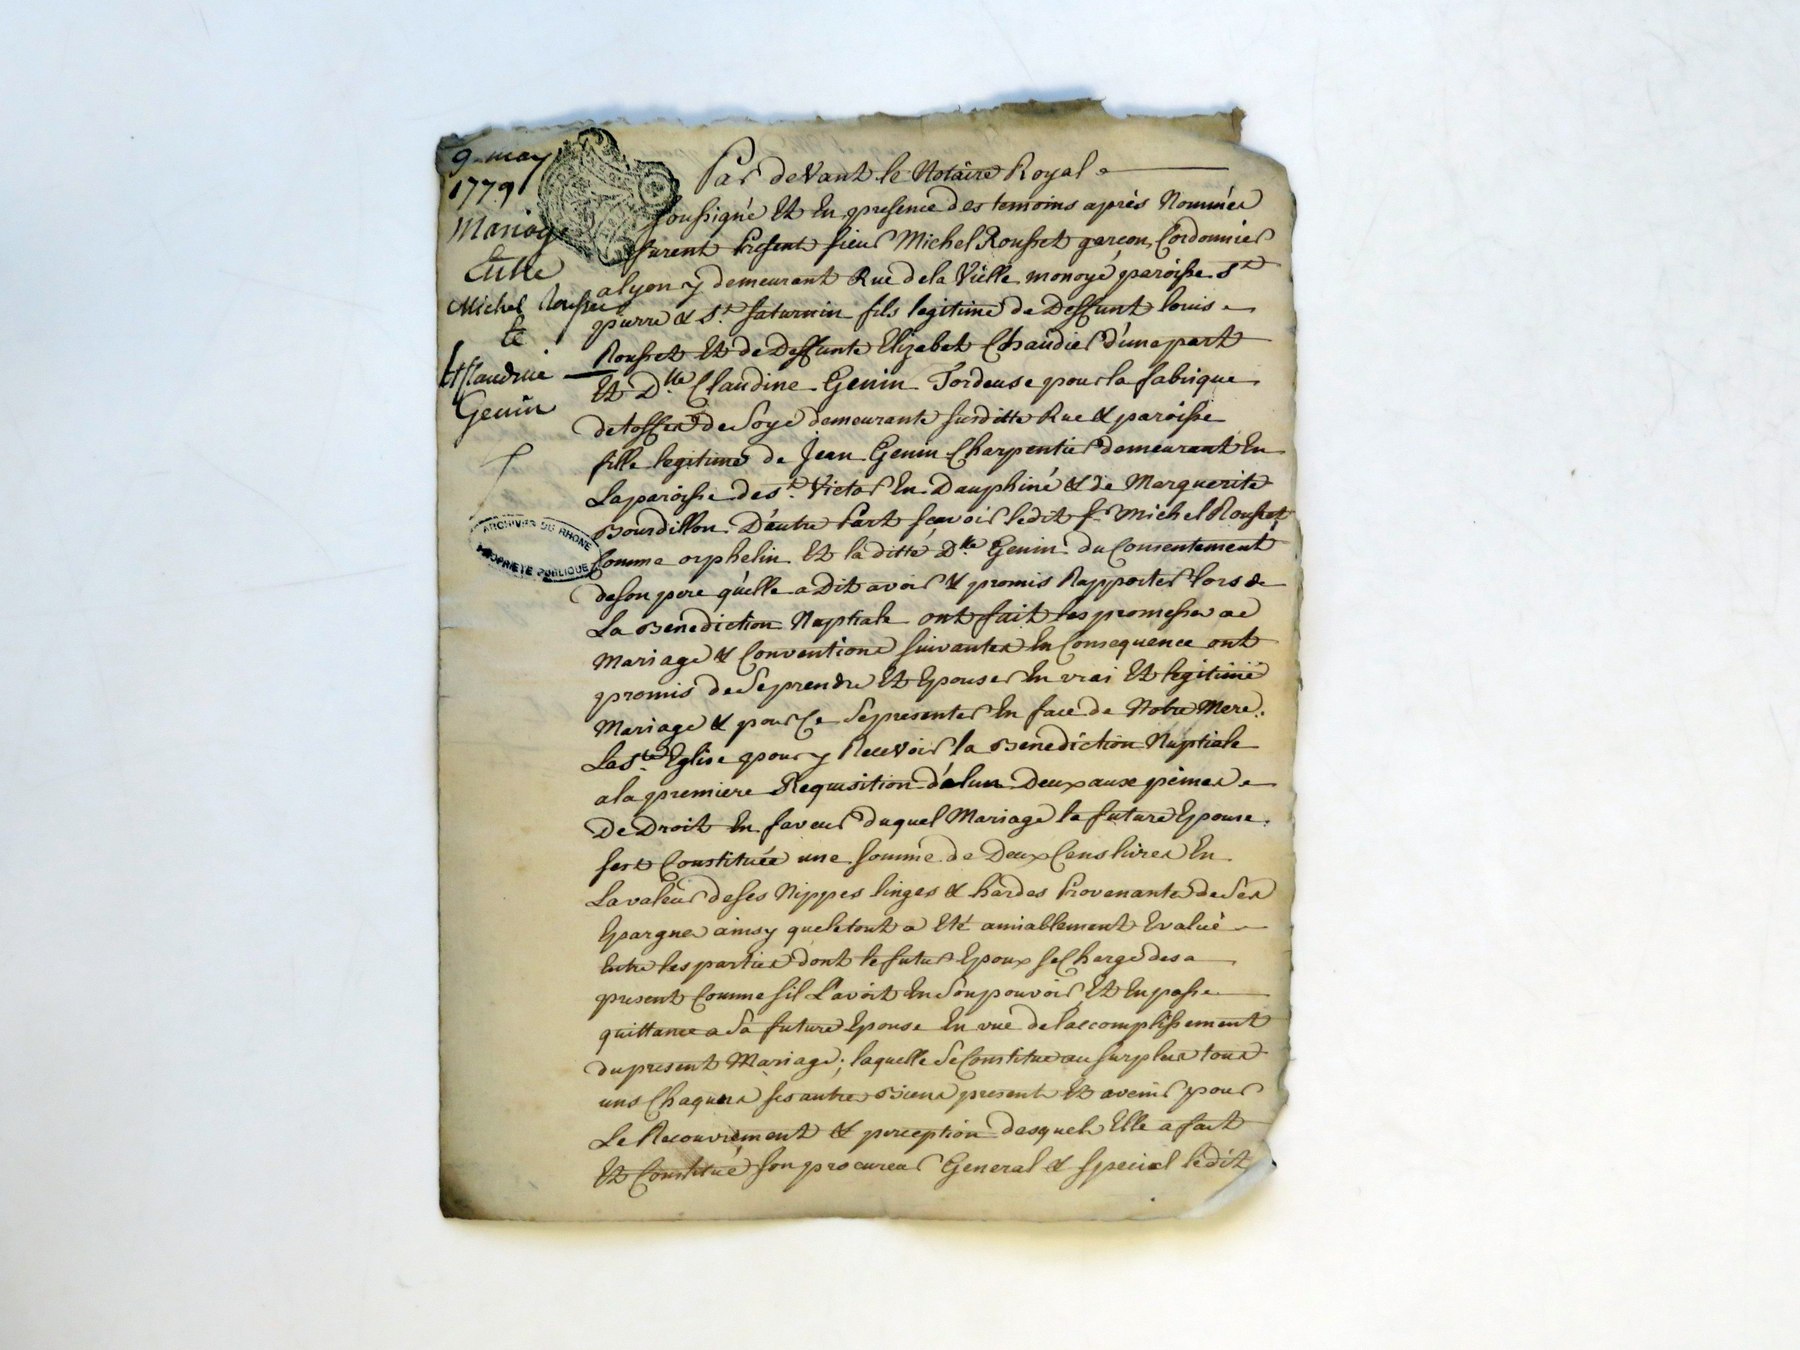 9 may
1779
Mariage
Entre
Michel Rousset
et
Claudine
Genin
ARCHIVES DU RHONE
PROPRIETE PUBLIQUE
Par devant le Notaire Royal
soussigné Et En presence des temoins après Nommés
furent Present sieur Michel Rousset garçon Cordonnier
a lyon y demeurant Rue de la Vielle monoye paroisse St
pierre & St saturnin fils legitime de Deffunt louis
Rousset Et de Deffunte Elizabet Chaudier d'une part
Et Dlle Claudine Genin Tordeuse pour la fabrique
detoffes de Soye demeurante susditte Rue & paroisse
fille legitime de Jean Genin Charpentier demeurant En
La paroisse de st Victor En Dauphiné & de Marguerite
Bourdillon D'autre Part scavoir ledit sr Michel Rousset
Comme orphelin Et la ditte Dlle Genin du Consentement
de son pere qu'elle a Dit avoir & promis Rapporter lors de
La Benediction Nuptiale ont fait les promesses de
Mariage & Conventions suivantes En Consequence ont
promis de Se prendre Et Epouser En vrai Et legitime
Mariage & pour Ce Se presenter En face de Notre Mere
La Ste Eglise pour y Recevoir la Benediction Nuptiale
a la premiere Requisition de lun Deux aux peines
De Droit En faveur duquel Mariage la future Epouse
sest Constituée une somme de Deux Cens livres En
La valeur de ses Nippes linges & hardes Provenantes de Ses
Epargnes ainsy que le tout a Eté amiablement Evalué
Entre les parties dont le futur Epoux se Charge des a
present Comme sil L'avoit En Son pouvoir Et En passe
quittance a Sa future Epouse En vue de l'accomplissement
du present Mariage; laquelle Se Constitue au surplus tous
uns Chaquns ses autres Biens present Et avenir pour
Le Recouvrement & perception desquels Elle a fait
Et Constitué son procureur General & special ledit